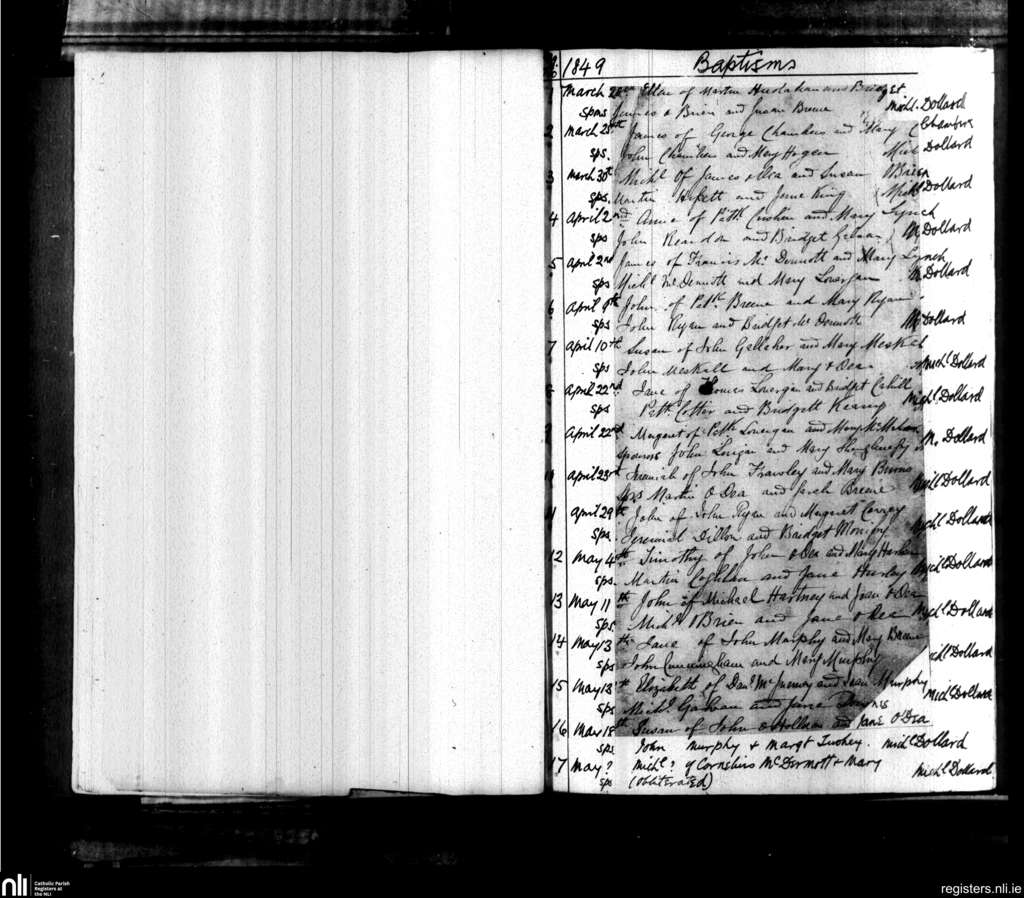 1849 Baptisms
1 March Ellen of Martin and Bridget
spns James O Brien and Susan Breene Michl. Dollard
2 March 25th James of George Chambers and Mary Chambers
sps. John Chambers and Mary Hogan Mich Dollard
3 March 30th Michl. of James O Dea and Susan O'Brien
sps. Martin and Jane King Michl Dollard
4 April 2nd Anne of Pattk and Mary Lynch
sps John Reardon and Bridget M Dollard
5 April 2nd James of Francis Mc Dermott and Mary Lynch
sps Michl Mc Dermott and Mary Lonergan M Dollard
6 April 9th John of Patk. Breene and Mary Ryan
sps John Ryan and Bridget Mc Dermott Dollard
7 April 10th Susan of John Gelleher and Mary Meskell
sps John Meskell and Mary O Dea Michl Dollard
April 22nd Jane of Lonergan and Bridget Cahill
sps Pattk. Cotter and Bridgett Michl. Dollard
9 April 22nd Margaret of Pattk Lonergan and Mary McMahon
Sponsors John and Mary M. Dollard
April 23rd of John and Mary
Sps Martin O Dea and Sarah Breene Michl Dollard
April 29th John of John Ryan and Margaret
sps. Jeremiah Dillon and Bridget Michl Dollard
12 May 4th Timothy of John O Dea and Mary
sps. Martin Coghlan and Jane Hurley Michl Dollard
13 May 11th John of Michael Hartney and Joan O Dea
sps. Michl O Brien and Jane O Dea Michl Dollard
14 May 13th Jane of John Murphy and Mary Breene
sps John Cunningham and Mary Murphy Michl Dollard
15 May 13th Elizabeth of Danl. and Murphy
sps Michl. and Jane Michl Dollard
16 May 18th Susan of John and Jane O'Dea
sps. John Murphy + Margt Tuohey. Michl Dollard
17 May ? Michl. ? of Cornelius McDermott + Mary
sp (obliterated) Michl Dollard
nli Catholic Parish
Registers at
the NLI
registers.nli.ie